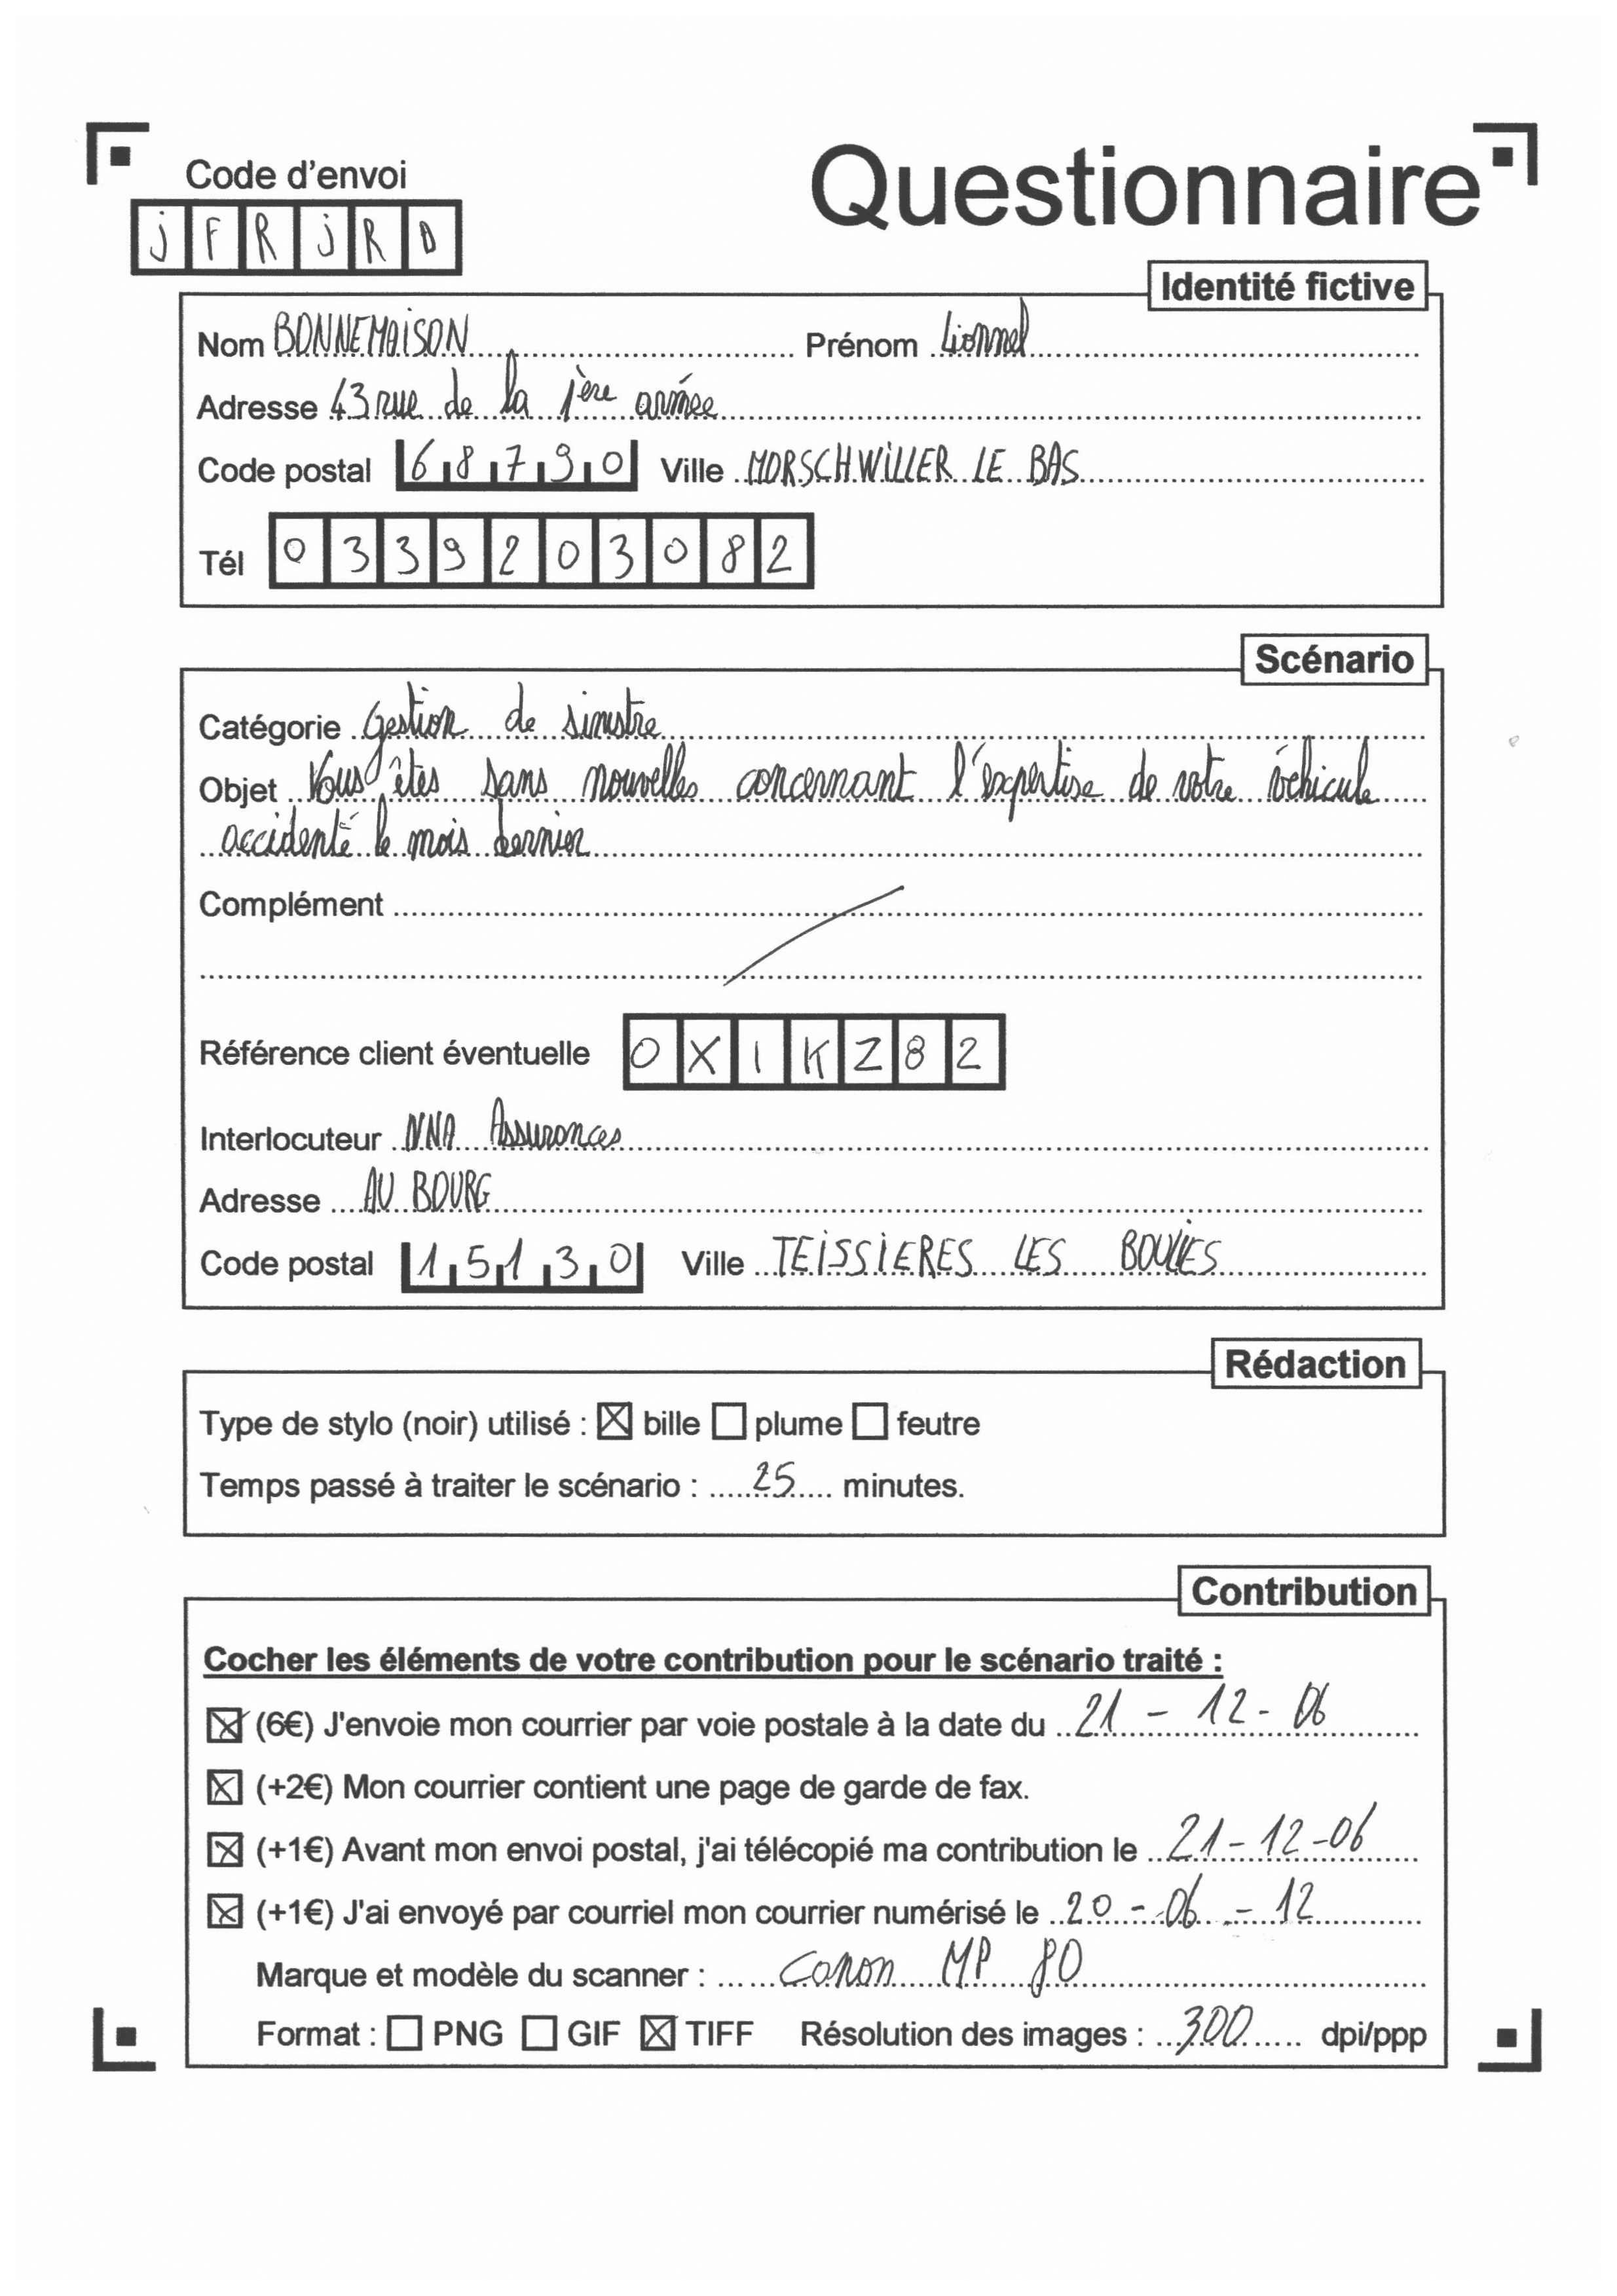 Code d'envoi
Questionnaire
j F R j R D
Identité fictive
Nom BONNEMAISON Prénom Lionnel
Adresse 43 rue de la 1ère armée
Code postal 68790 Ville MORSCHWILLER LE BAS
Tél 0339203082
Scénario
Catégorie Gestion de sinistre
Objet Vous êtes sans nouvelles concernant l'expertise de votre véhicule
accidenté le mois dernier
Complément
Référence client éventuelle OXIKZ82
Interlocuteur NNA Assurances
Adresse AU BOURG
Code postal 15130 Ville TEISSIERES LES BOULIES
Rédaction
Type de stylo (noir) utilisé : ☒ bille ☐ plume ☐ feutre
Temps passé à traiter le scénario : 25 minutes.
Contribution
Cocher les éléments de votre contribution pour le scénario traité :
☒ (6€) J'envoie mon courrier par voie postale à la date du 21 - 12 - 06
☒ (+2€) Mon courrier contient une page de garde de fax.
☒ (+1€) Avant mon envoi postal, j'ai télécopié ma contribution le 21-12-06
☒ (+1€) J'ai envoyé par courriel mon courrier numérisé le 20 - 06 - 12
Marque et modèle du scanner : Canon MP 80
Format : ☐ PNG ☐ GIF ☒ TIFF Résolution des images : 300 dpi/ppp